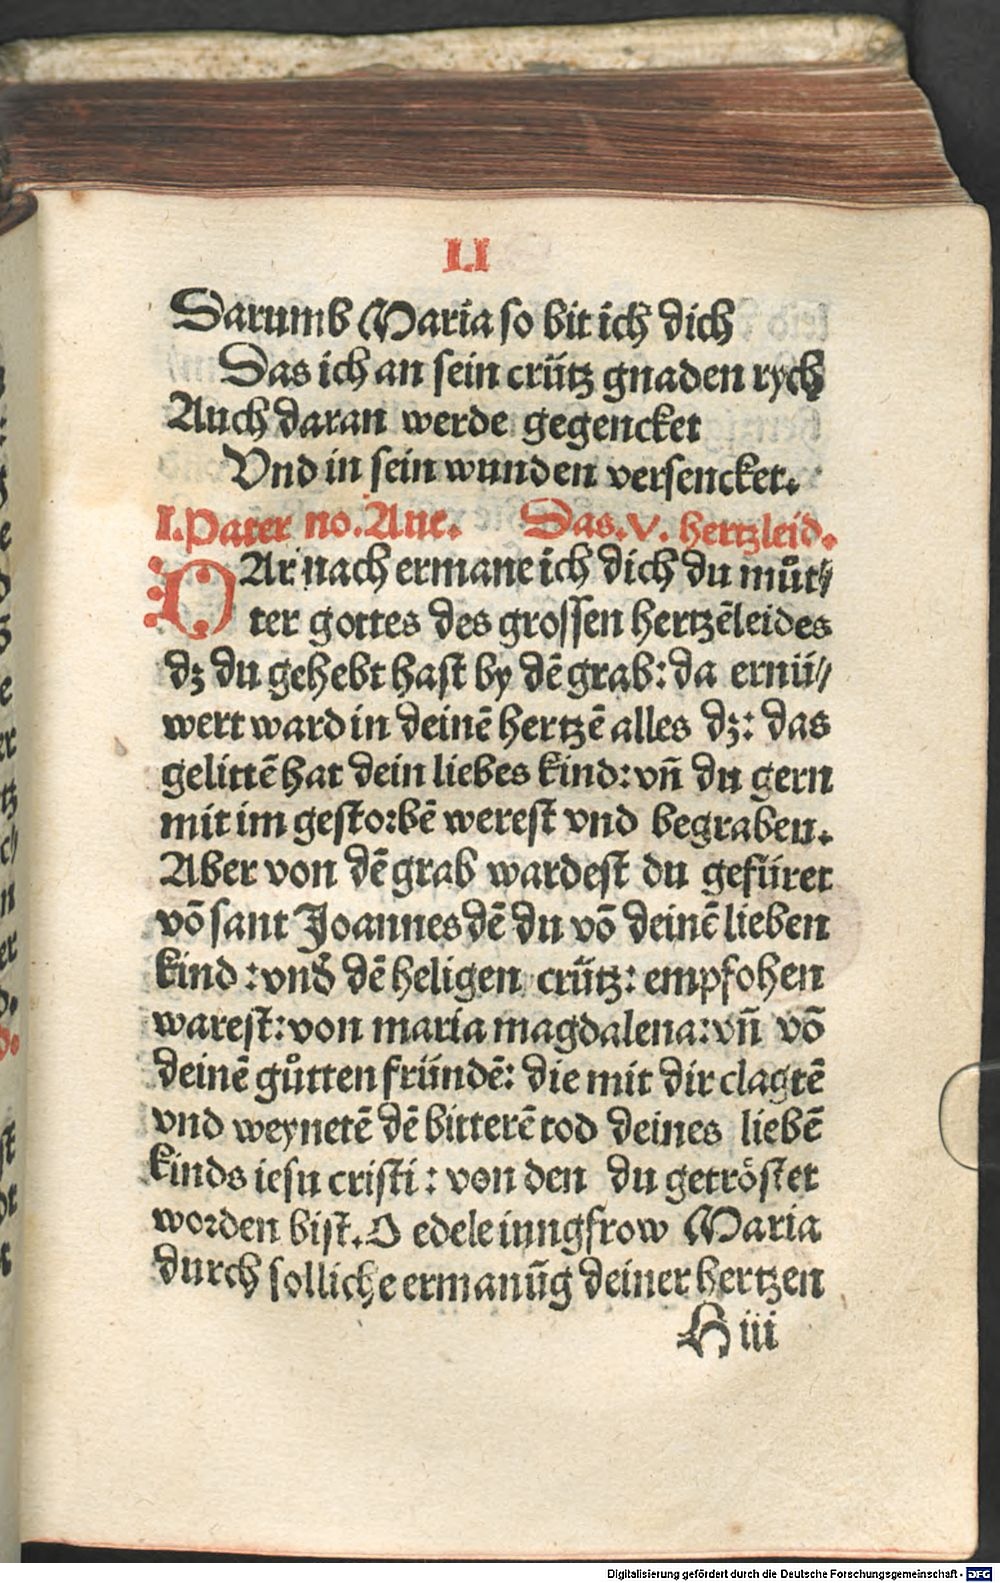 LI
Darumb Maria so bit ich dich
Das ich an sein crütz gnaden rych
Auch daran werde gegencket
Vnd in sein wunden versencket.
I. Pater no. Aue. Das. V. hertzleid.
DAr nach ermane ich dich du můt⸗
ter gottes des grossen hertzēleides
dz du gehebt hast by dē grab: da ernü⸗
wert ward in deinē hertzē alles dz: das
gelittē hat dein liebes kind: vn̄ du gern
mit im gestorbē werest vnd begraben.
Aber von dē grab wardest du gefüret
vō sant Joannes dē du vō deinē lieben
kind: vnd̓ dē heligen crütz: empfohen
warest: von maria magdalena: vn̄ vō
deinē gůtten fründē: die mit dir clagtē
vnd weynetē dē bitterē tod deines liebē
kinds iesu cristi: von den du getröstet
worden bist. O edele iungfrow Maria
durch solliche ermanūg deiner hertzen
H iii
Digitalisierung gefördert durch die Deutsche Forschungsgemeinschaft - DFG